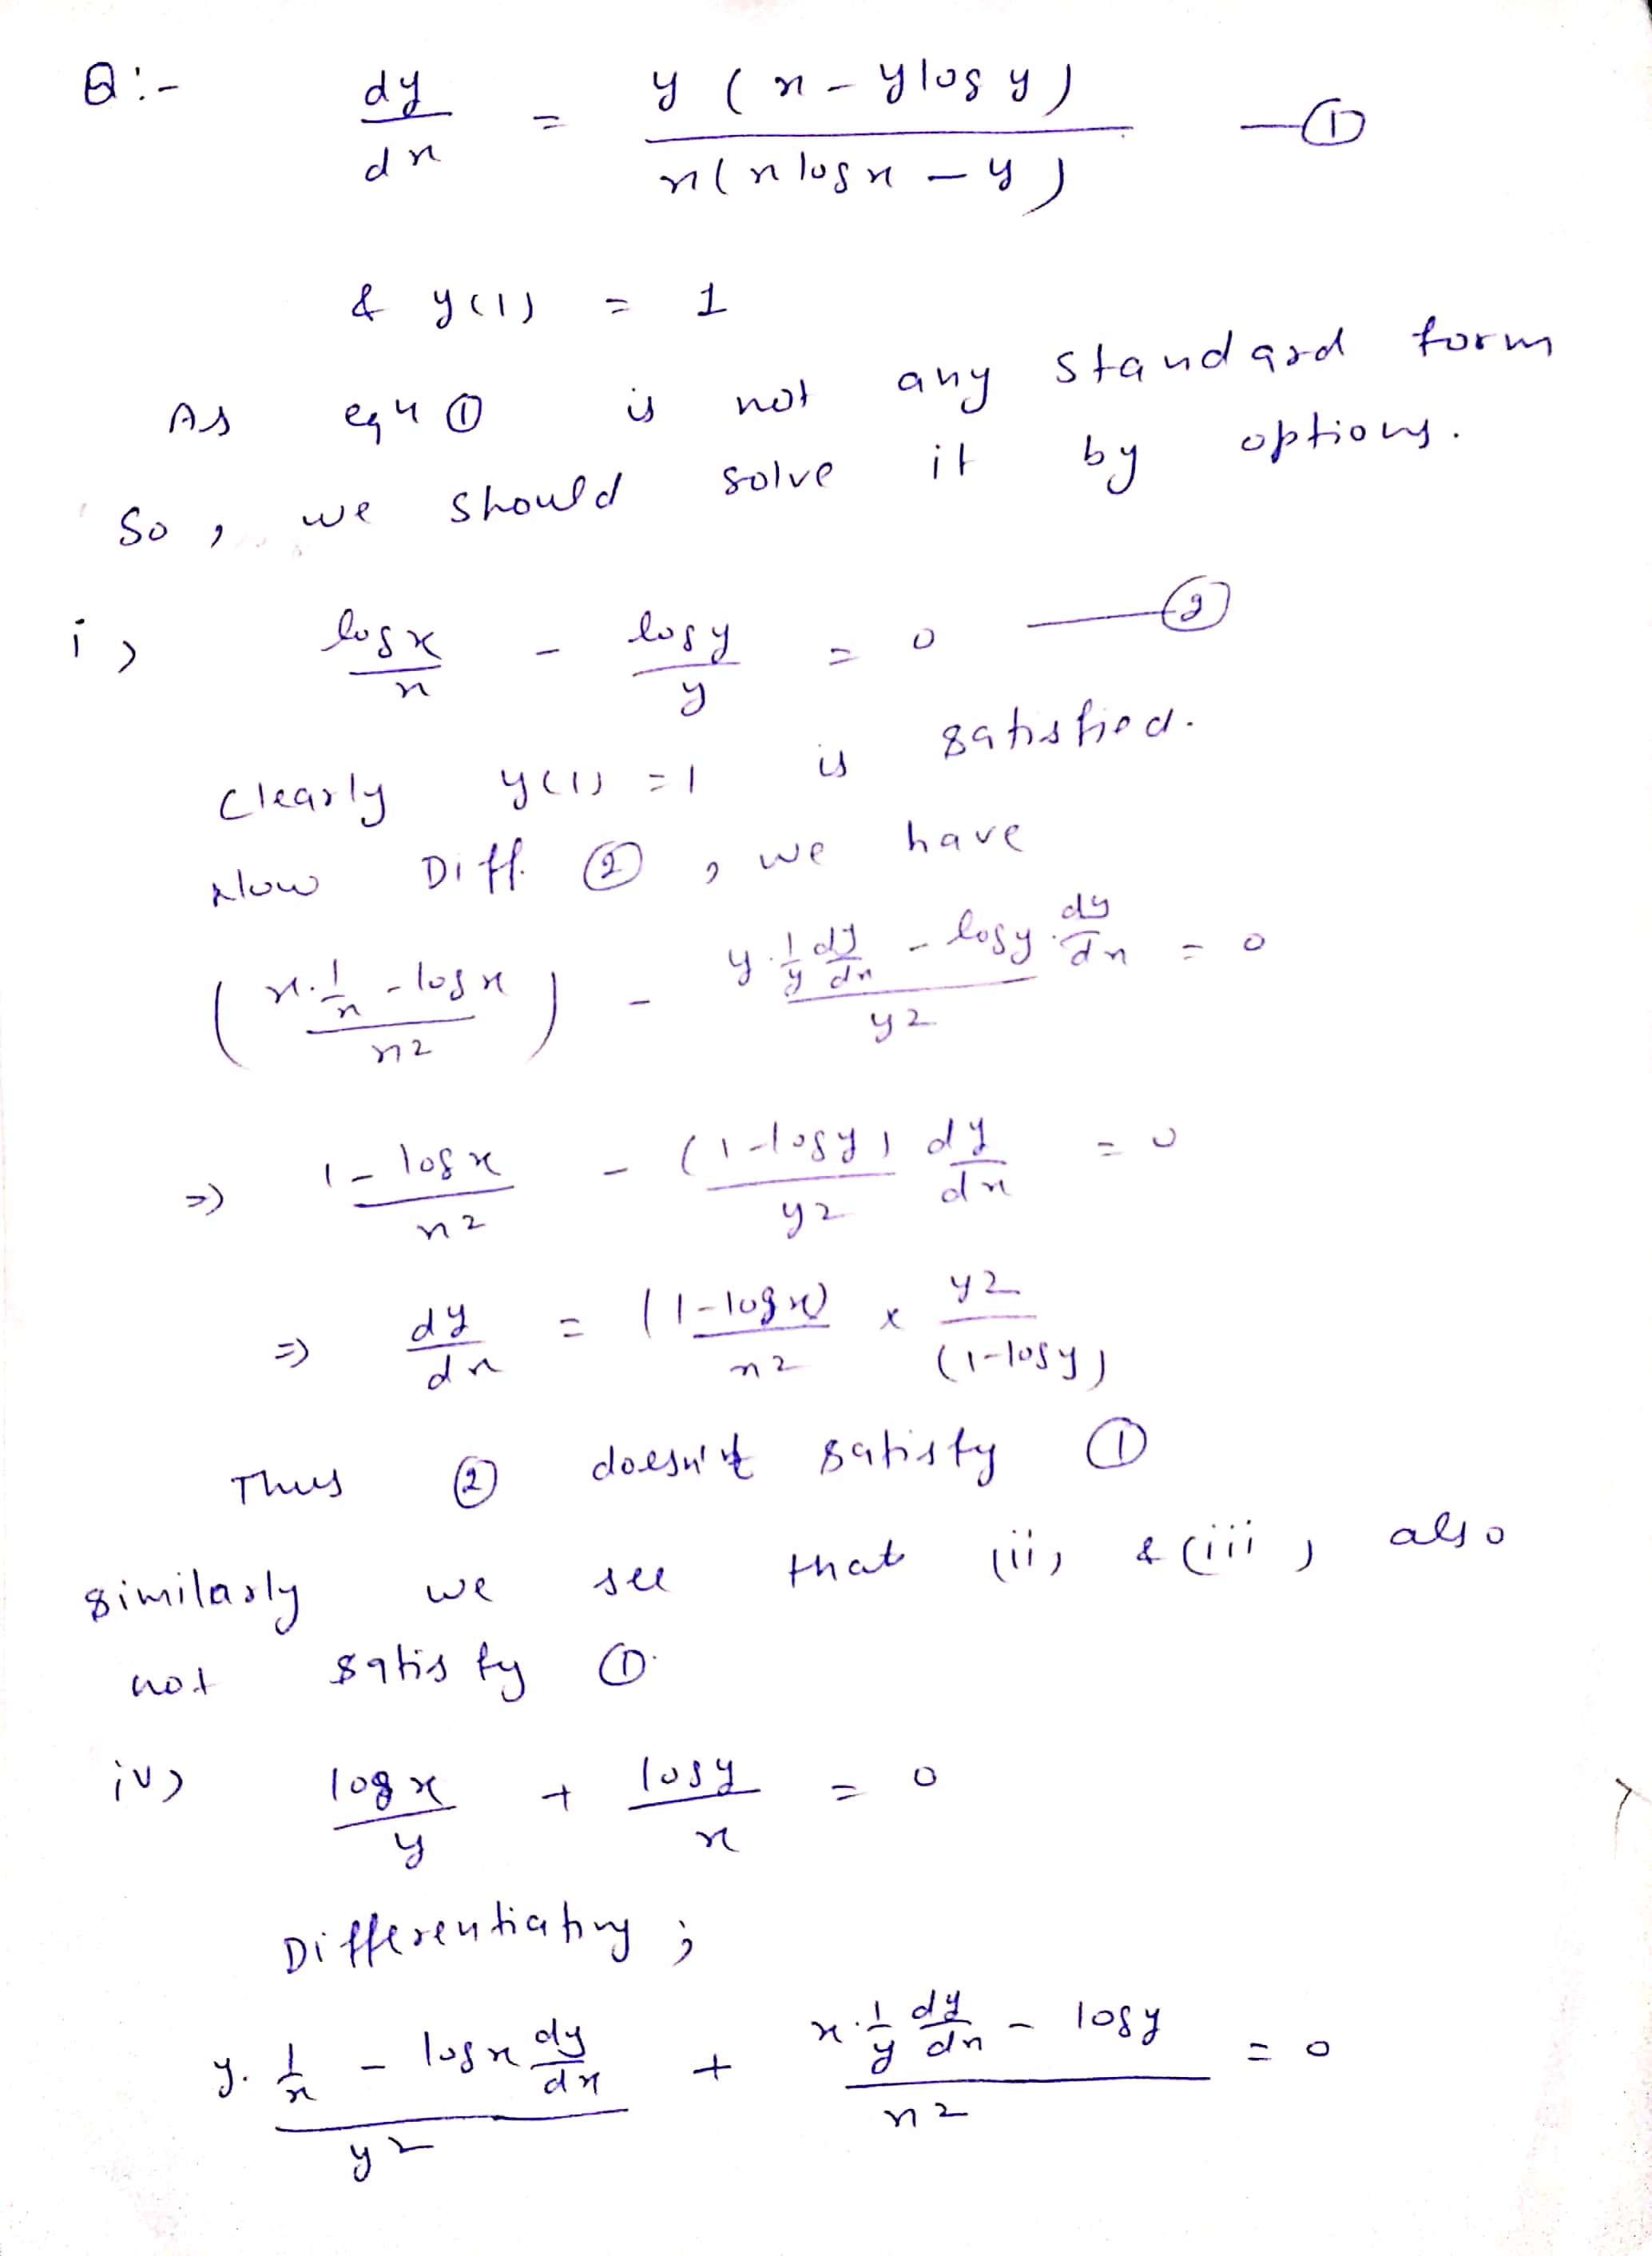 Q:- dy/dx = y (x - y log y) / x(x log x - y) —①
& y(1) = 1
As eqn ① is not any standard form
So, we should solve it by options.
i) log x / x - log y / y = 0 —②
Clearly y(1) = 1 is satisfied.
Now Diff. ②, we have
(x·1/x - log x / x²) - y·1/y dy/dx - log y · dy/dx / y² = 0
=) 1 - log x / x² - (1 - log y) / y² dy/dx = 0
=) dy/dx = (1 - log x) / x² × y² / (1 - log y)
Thus ② doesn't satisfy ①
similarly we see that (ii) & (iii) also
not satisfy ①.
iv) log x / y + log y / x = 0
Differentiating ;
y·1/x - log x dy/dx / y² + x·1/y dy/dx - log y / x² = 0